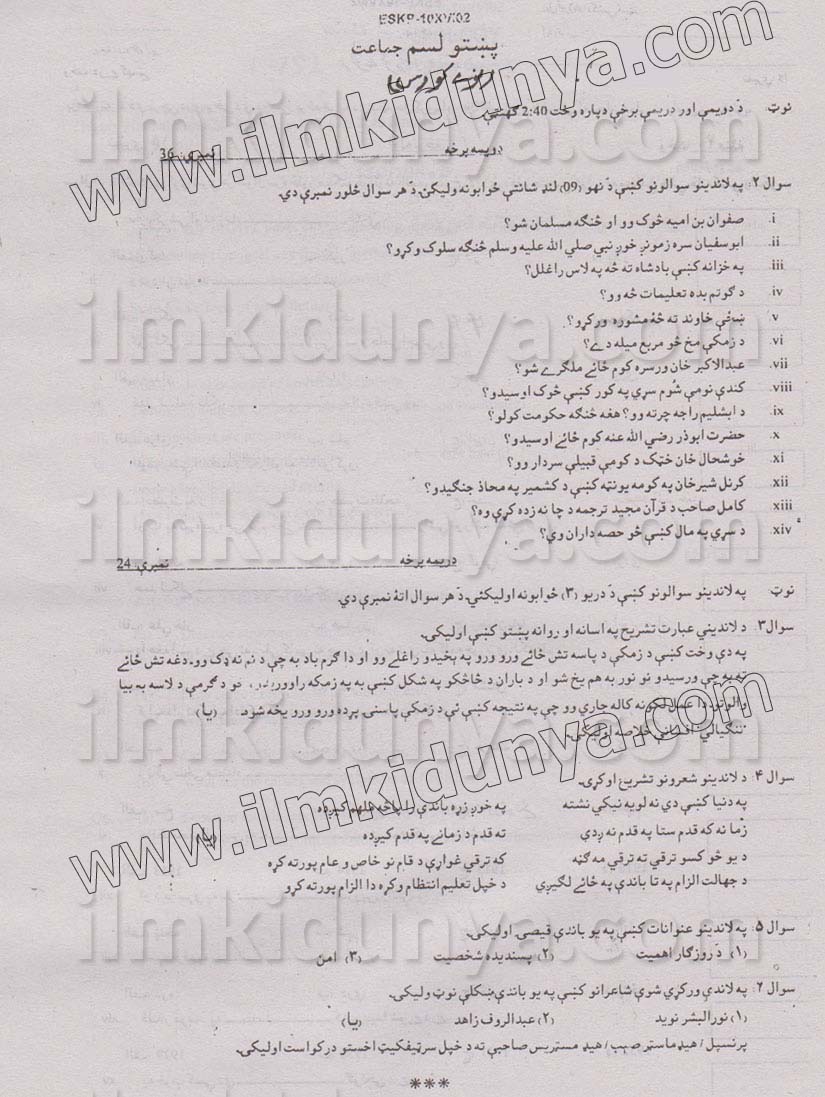 پښتو لسم جماعت
نوټ د دویمې اور دریمې برخې دپاره وخت 2:40 ګهنټې
دویمه برخه نمبرې: 36
سوال ۲: په لاندینو سوالونو کښې د نهو (09) لنډ شانتې ځوابونه ولیکئ. د هر سوال څلور نمبرې دي.
i. صفوان بن امیه څوک وو او څنګه مسلمان شو؟
ii. ابوسفیان سره زمونږ خوږ نبي صلي الله علیه وسلم څنګه سلوک وکړو؟
iii. په خزانه کښې بادشاه ته څه په لاس راغلل؟
iv. د ګوتم بده تعلیمات څه وو؟
v. ښځې خاوند ته څۀ مشوره ورکړو؟
vi. د زمکې مخ څو مربع میله دے؟
vii. عبدالاکبر خان ورسره کوم ځائے ملګرے شو؟
viii. کندي نومې شوم سړي په کور کښې څوک اوسیدو؟
ix. د ابشلیم راجه چرته وو؟ هغه څنګه حکومت کولو؟
x. حضرت ابوذر رضي الله عنه کوم ځائے اوسیدو؟
xi. خوشحال خان خټک د کومې قبیلې سردار وو؟
xii. کرنل شیرخان په کومه یونټه کښې د کشمیر په محاذ جنګیدو؟
xiii. کامل صاحب د قرآن مجید ترجمه د چا نه زده کړې وه؟
xiv. د سړي په مال کښې څو حصه داران وي؟
دریمه برخه نمبرې: 24
نوټ په لاندینو سوالونو کښې د دریو (۳) ځوابونه اولیکئي. د هر سوال اتۀ نمبرې دي.
سوال ۳: د لاندیني عبارت تشریح په اسانه او روانه پښتو کښې اولیکئ.
په دې وخت کښې د زمکې د پاسه تش ځائے ورو ورو په یخیدو راغلے وو او دا ګرم باد به چې د نم نه ډک وو. دغه تش ځائے
ته به چې ورسیدو نو نور به هم یخ شو او د باران د څاڅکو په شکل کښې به په زمکه خو د ګرمۍ د لاسه به بیا
والوتو. دا عمل لکونه کاله جاري وو چې په نتیجه کښې ئې د زمکې پاسنۍ پرده ورو ورو یخه شوه. (یا)
ننګیالي افسانې خلاصه اولیکئ.
سوال ۴: د لاندینو شعرونو تشریح اوکړئ.
په دنیا کښې دې نه لویه نیکي نشته په خوږ زړه باندې
زما نه که قدم ستا په قدم نه ږدي ته قدم د زمانے په قدم کیږده (یا)
د یو څو کسو ترقي ته ترقي مه ګڼه که ترقي غواړې د قام نو خاص و عام پورته کړه
د جهالت الزام په تا باندې په ځائے لګیږي د خپل تعلیم انتظام وکړه دا الزام پورته کړو
سوال ۵: په لاندینو عنوانات کښې په یو باندې قیصۍ اولیکئ.
(۱) د روزګار اهمیت (۲) پسندیده شخصیت (۳) امن
سوال ۶: په لاندې ورکړي شوي شاعرانو کښې په یو باندې ښکلې نوټ ولیکئ.
(۱) نورالبشر نوید (۲) عبدالروف زاهد (یا)
پرنسپل / هیډ ماسټر صیب / هیډ مسټریس صاحبې ته د خپل سرټیفکیټ اخستو درکواست اولیکئ.
***
www.ilmkidunya.com
www.ilmkidunya.com
www.ilmkidunya.com
ilmkidunya.com
ilmkidunya.com
ilmkidunya.com
ilmkidunya.com
ilmkidunya.com